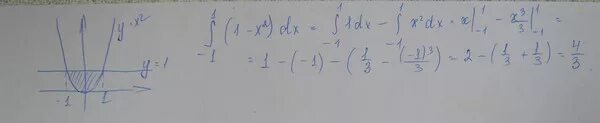 y = x²
∫₋₁¹ (1 - x²) dx = ∫₋₁¹ 1dx - ∫₋₁¹ x²dx = x|₋₁¹ - x³/3|₋₁¹ =
y = 1
= 1 - (-1) - (1/3 - (-1)³/3) = 2 - (1/3 + 1/3) = 4/3
-1 1